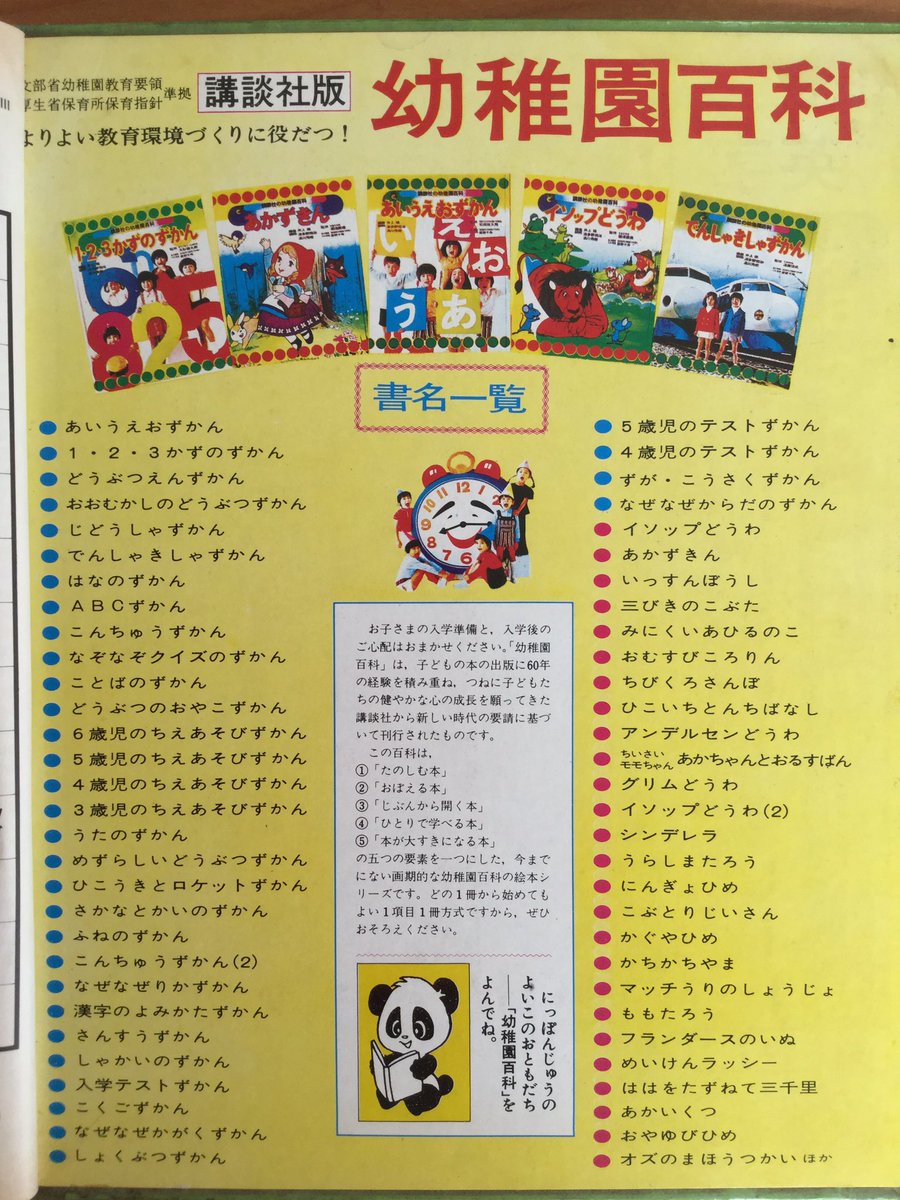 文部省幼稚園教育要領
厚生省保育所保育指針
準拠
講談社版
幼稚園百科
よりよい教育環境づくりに役だつ！
1・2・3かずのずかん
あかずきん
あいうえおずかん
イソップどうわ
でんしゃきしゃずかん
書名一覧
あいうえおずかん
1・2・3かずのずかん
どうぶつえんずかん
おおむかしのどうぶつずかん
じどうしゃずかん
でんしゃきしゃずかん
はなのずかん
ABCずかん
こんちゅうずかん
なぞなぞクイズのずかん
ことばのずかん
どうぶつのおやこずかん
6歳児のちえあそびずかん
5歳児のちえあそびずかん
4歳児のちえあそびずかん
3歳児のちえあそびずかん
うたのずかん
めずらしいどうぶつずかん
ひこうきとロケットずかん
さかなとかいのずかん
ふねのずかん
こんちゅうずかん(2)
なぜなぜりかずかん
漢字のよみかたずかん
さんすうずかん
しゃかいのずかん
入学テストずかん
こくごずかん
なぜなぜかがくずかん
しょくぶつずかん
お子さまの入学準備と，入学後の
ご心配はおまかせください。「幼稚園
百科」は，子どもの本の出版に60年
の経験を積み重ね，つねに子どもた
ちの健やかな心の成長を願ってきた
講談社から新しい時代の要請に基づ
いて刊行されたものです。
この百科は，
①「たのしむ本」
②「おぼえる本」
③「じぶんから開く本」
④「ひとりで学べる本」
⑤「本が大すきになる本」
の五つの要素を一つにした，今まで
にない画期的な幼稚園百科の絵本シ
リーズです。どの1冊から始めても
よい1項目1冊方式ですから，ぜひ
おそろえください。
にっぽんじゅうの
よいこのおともだち
──「幼稚園百科」を
よんでね。
5歳児のテストずかん
4歳児のテストずかん
ずが・こうさくずかん
なぜなぜからだのずかん
イソップどうわ
あかずきん
いっすんぼうし
三びきのこぶた
みにくいあひるのこ
おむすびころりん
ちびくろさんぼ
ひこいちとんちばなし
アンデルセンどうわ
ちいさいモモちゃん あかちゃんとおるすばん
グリムどうわ
イソップどうわ(2)
シンデレラ
うらしまたろう
にんぎょひめ
こぶとりじいさん
かぐやひめ
かちかちやま
マッチうりのしょうじょ
ももたろう
フランダースのいぬ
めいけんラッシー
ははをたずねて三千里
あかいくつ
おやゆびひめ
オズのまほうつかい ほか